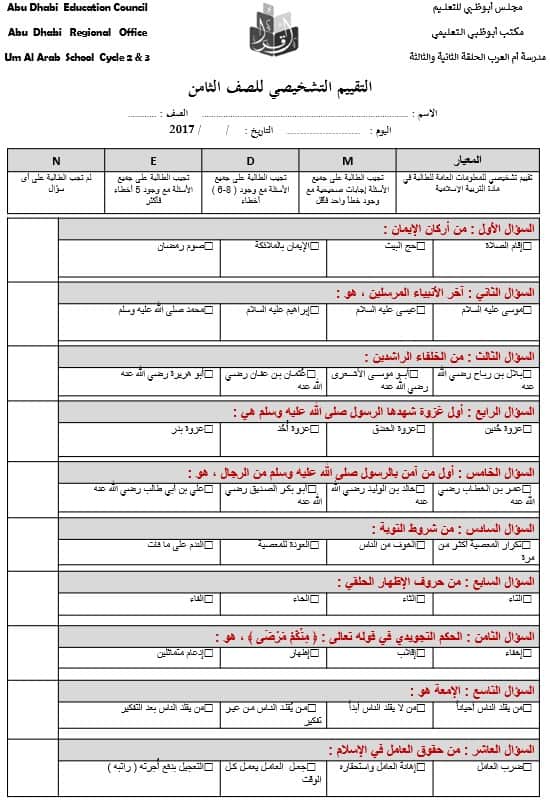 Abu Dhabi Education Council
مجلس أبوظبي للتعليم
Abu Dhabi Regional Office
مكتب أبوظبي التعليمي
Um Al Arab School Cycle 2 & 3
مدرسة أم العرب الحلقة الثانية والثالثة
اقرأ
التقييم التشخيصي للصف الثامن
الاسم : ........................ الصف : ............
اليوم : ........................ التاريخ : / / 2017
المعيار M D E N
تقييم تشخيصي للمعلومات العامة للطالبة في مادة التربية الإسلامية
تجيب الطالبة على جميع الأسئلة إجابات صحيحية مع وجود خطأ واحد فأقل
تجيب الطالبة على جميع الأسئلة مع وجود ( 8-6 ) أخطاء
تجيب الطالبة على جميع الأسئلة مع وجود 5 أخطاء فأكثر
لم تجب الطالبة على أي سؤال
السؤال الأول : من أركان الإيمان :
□إقام الصلاة □حج البيت □الإيمان بالملائكة □صوم رمضان
السؤال الثاني : آخر الأنبياء المرسلين ، هو :
□موسى عليه السلام □عيسى عليه السلام □إبراهيم عليه السلام □محمد صلى الله عليه وسلم
السؤال الثالث : من الخلفاء الراشدين :
□بلال بن رباح رضي الله عنه □أبو موسى الأشعري رضي الله عنه □عثمان بن عفان رضي الله عنه □أبو هريرة رضي الله عنه
السؤال الرابع : أول غزوة شهدها الرسول صلى الله عليه وسلم هي :
□غزوة حُنين □غزوة الخندق □غزوة أُحُد □غزوة بدر
السؤال الخامس : أول من آمن بالرسول صلى الله عليه وسلم من الرجال ، هو :
□عمر بن الخطاب رضي الله عنه □خالد بن الوليد رضي الله عنه □أبو بكر الصديق رضي الله عنه □علي بن أبي طالب رضي الله عنه
السؤال السادس : من شروط التوبة :
□تكرار المعصية أكثر من مرة □الخوف من الناس □العودة للمعصية □الندم على ما فات
السؤال السابع : من حروف الإظهار الحلقي :
□التاء □الثاء □الحاء □الفاء
السؤال الثامن : الحكم التجويدي في قوله تعالى : ( مِنْكُمْ مَرْضَى ) ، هو :
□إخفاء □إقلاب □إظهار □إدغام متماثلين
السؤال التاسع : الإمعة هو :
□من يقلد الناس أحياناً □من لا يقلد الناس أبداً □من يُقلد الناس من غير تفكير □من يقلد الناس بعد التفكير
السؤال العاشر : من حقوق العامل في الإسلام :
□ضرب العامل □إهانة العامل واستحقاره □جعل العامل يعمل كل الوقت □التعجيل بدفع أجرته ( راتبه )